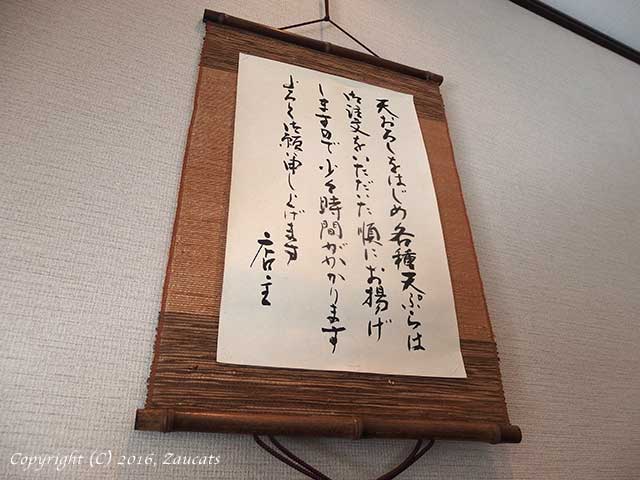 天おろしをはじめ各種天ぷらは
御注文をいただいた順にお揚げ
しますので少々時間がかかります
よろしく御願い申し上げます
店主
Copyright (C) 2016, Zaucats